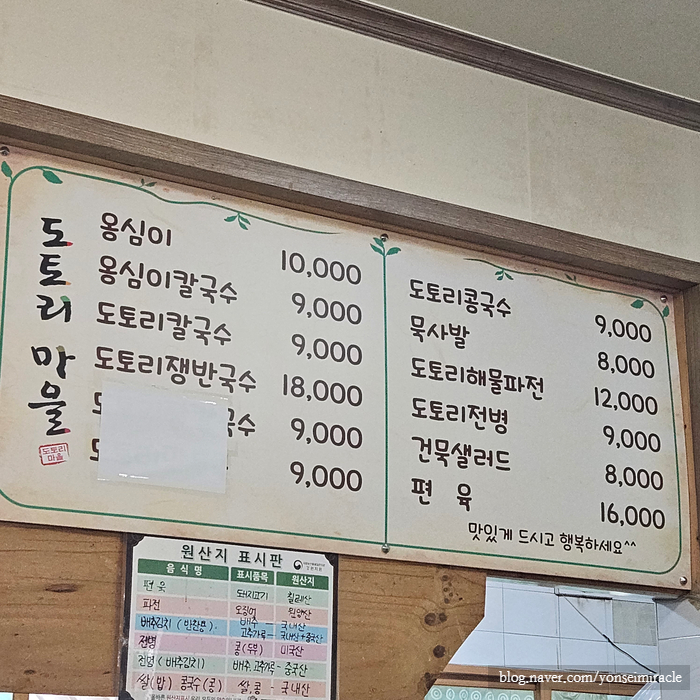 도토리마을
도토리
마을
옹심이 10,000
옹심이칼국수 9,000
도토리칼국수 9,000
도토리쟁반국수 18,000
국수 9,000
9,000
도토리콩국수 9,000
묵사발 8,000
도토리해물파전 12,000
도토리전병 9,000
건묵샐러드 8,000
편 육 16,000
맛있게 드시고 행복하세요^^
원산지 표시판
음식명 표시품목 원산지
편육 돼지고기 칠레산
파전 오징어 원양산
배추김치 (반찬용) 배추 - 국내산
고추가루 - 국내산+중국산
전병 콩(두부) 미국산
전병 (배추김치) 배추.고추가루 - 중국산
쌀(밥) 콩국수(콩) 쌀,콩 - 국내산
blog.naver.com/yonseimiracle